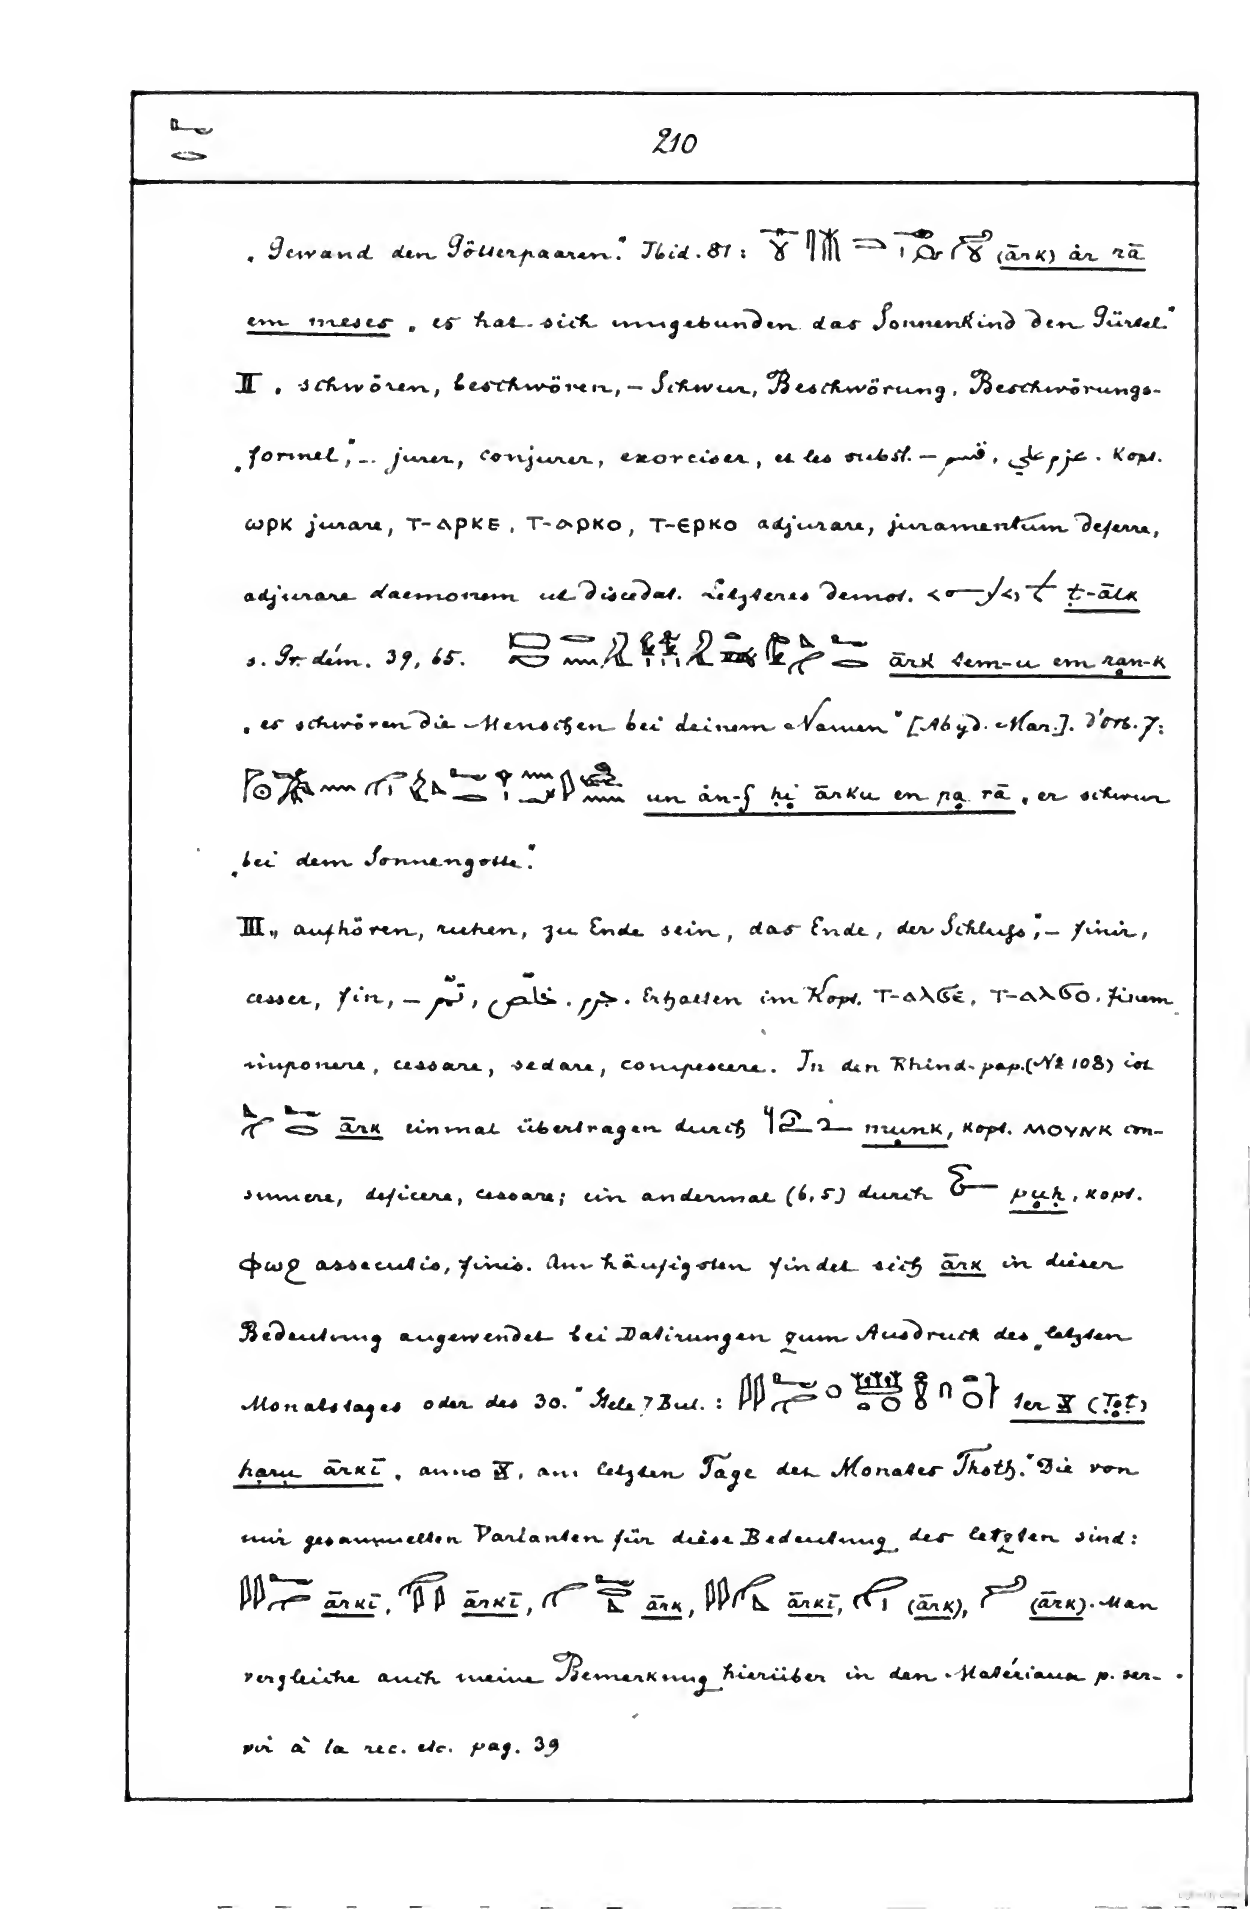 210
„Gewand den Götterpaaren“. Ibid. 81: (ārk) år rā
em meses „es hat sich umgebunden das Sonnenkind den Gürtel.“
II „schwören, beschwören, – Schwur, Beschwörung, Beschwörungs-
„formel“, – jurer, conjurer, exorciser, et les subst. – قسم, عزم على. Kopt.
ⲱⲣⲕ jurare, ⲧ-ⲁⲣⲕⲉ, ⲧ-ⲁⲣⲕⲟ, ⲧ-ⲉⲣⲕⲟ adjurare, juramentum deferre,
adjurare daemonem ut discedat. Letzteres demot. ṭ-ālk
s. Gr. dém. 39, 65. ārk tem-u em ran-k
„es schwören die Menschen bei deinem Namen“ [Abyd. Mar.]. d'Orb. 7:
un ån-f ḥi ārku en pa rā „er schwur
„bei dem Sonnengotte“.
III „aufhören, ruhen, zu Ende sein, das Ende, der Schluss“, – finir,
cesser, fin, – تمّ, خلص, جزم. Erhalten im Kopt. ⲧ-ⲁⲗϭⲉ, ⲧ-ⲁⲗϭⲟ, finem
imponere, cessare, sedare, compescere. In den Rhind-pap. (№ 108) ist
ārk einmal übertragen durch munk, kopt. ⲙⲟⲩⲛⲕ con-
sumere, deficere, cessare; ein andermal (6,5) durch puḥ, kopt.
ⲫⲱϩ assecutio, finis. Am häufigsten findet sich ārk in dieser
Bedeutung angewendet bei Datirungen zum Ausdruck des „letzten
Monatstages oder des 30.“ Stele 7 Bul.: ter X (Tot)
haru ārkī „anno X, am letzten Tage des Monates Thoth.“ Die von
mir gesammelten Varianten für diese Bedeutung des letzten sind:
ārkī, ārkī, ārk, ārkī, (ārk), (ārk). Man
vergleiche auch meine Bemerkung hierüber in den Matériaux p. ser-
vir à la rec. etc. pag. 39